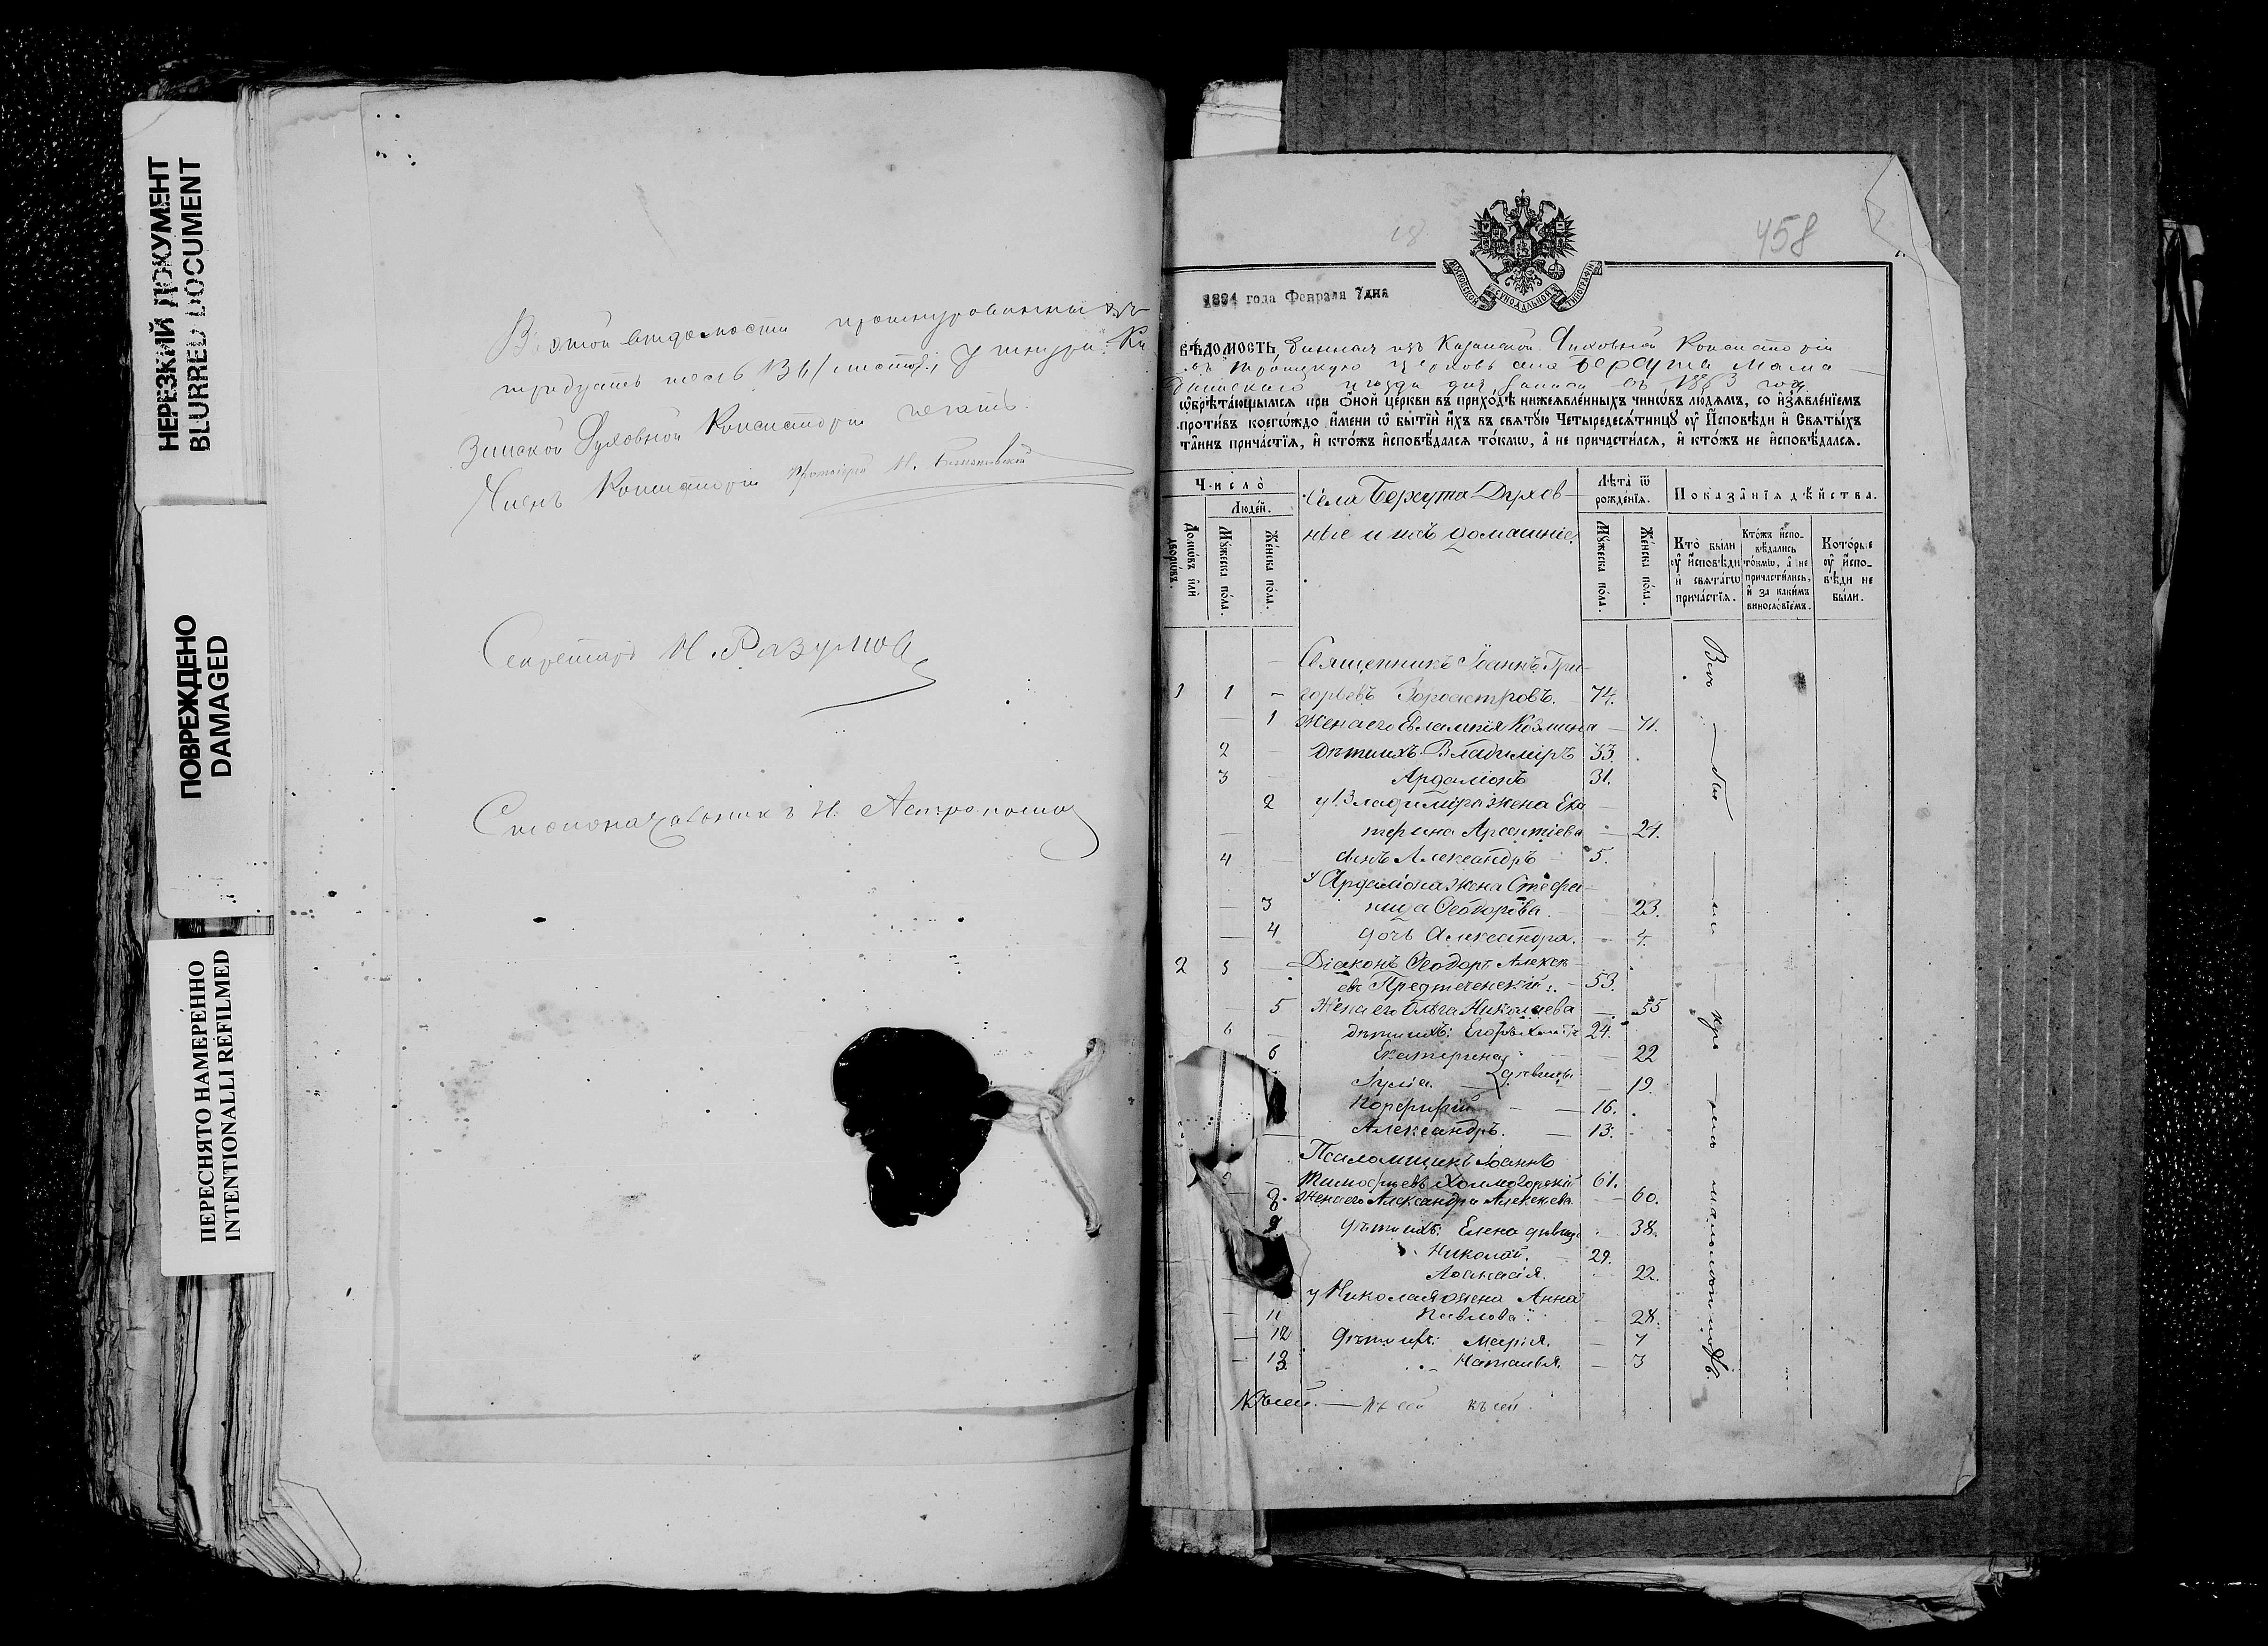 НЕРЕЗКИЙ ДОКУМЕНТ
BLURRED DOCUMENT
ПОВРЕЖДЕНО
DAMAGED
ПЕРЕСНЯТО НАМЕРЕННО
INTENTIONALLI REFILMED
В этой ведомости прошнурованныхъ
тридцать шесть 36/ листовъ, у шнура Ка
занской Духовной Консисторіи печать.
Членъ Консисторіи Протоіерей
Секретарь Н. Разумовъ
Столоначальникъ Н. Астрономовъ
458
МОСКОВСКОЙ СѴНОДАЛЬНОЙ ТИПОГРАФІИ
1884 года Февраля 7 дня
ВѢДОМОСТЬ, данная изъ Казанской Духовной Консисторіи
въ Троицкую церковь села Берсута Мама
дышскаго уѣзда для записи въ году
ѡбрѣтающымсѧ при оной церкви въ приходѣ нижеѧвленныхъ чинѡвъ людѧмъ, со изъѧвленїемъ
противъ коегѡждо имени ѡ бытїи ихъ въ свѧтую Четыредесѧтницу оу Исповѣди и Свѧтыхъ
таинъ причастїѧ, и ктожъ исповѣдалсѧ токмѡ, а не причастилсѧ, и ктожъ не исповѣдалсѧ.
Число
Людей.
Домѡвъ или дворѡвъ.
Мужеска пола.
Женска пола.
Села Берсута Духов-
ные и ихъ домашніе.
Лѣта ѿ рожденїѧ.
Мужеска пола.
Женска пола.
Показанїѧ дѣйства.
Кто были оу исповѣди и свѧтагѡ причастїѧ.
Ктожъ испо-вѣдались токмѡ, а не причастились, и за какимъ винословїемъ.
Которые оу испо-вѣди не были.
Священникъ Іоаннъ Гри-
1 1 — горьевъ Зороастровъ. 74.
— 1 Жена его Евлампія Козмина — 71.
2 — Дѣти ихъ: Владиміръ 33.
3 — Ардаліонъ 31.
2 у Владиміра жена Ека-
терина Арсентіева — 24.
4 — сынъ Александръ 5.
у Ардаліона жена Стефа-
— 3 нида Ѳеодорова. — 23.
— 4 дочь Александра. — 4.
2 5 — Діаконъ Ѳеодоръ Алексѣ-
евъ Предтеченскій. 53.
— 5 Жена его Ольга Николаева — 55
6 — Дѣти ихъ: Егоръ 24.
6 Екатерина — 22
Іулія. дѣвицы — 19.
Порфирій — 16.
Александръ. — 13.
Псаломщикъ Іоаннъ
Тимофеевъ Холмогорскій 61.
8. Жена его Александра Алексѣева — 60.
9. дѣти ихъ: Елена дѣвица 38.
Николай. 29.
Аѳанасія. 22.
у Николая жена Анна
— 11 Павлова — 28.
— 12 Дѣти ихъ: Марія. — 7
— 13 Наталья. — 3
Всѣ — бы — ли — кро — мѣ малолѣтковъ.